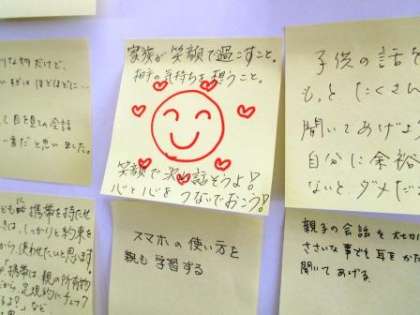 家族が笑顔で過ごすこと。
相手の気持ちを想うこと。
笑顔で 話そうよ!
心と心を つないでおこう!
子供の話を
もっと たくさん
聞いてあげよう
自分に余裕
ないと ダメだ
スマホの使い方を
親も学習する
親子の会話を 大切
ささいな事でも耳をかた
聞いてあげる。
目を見ての会話
一番だと思いました。
携帯を持たせ
しっかりと約束を
から、使わせたいと思います。
携帯は親の所有物
から、定期的にチェック
るよ?」など